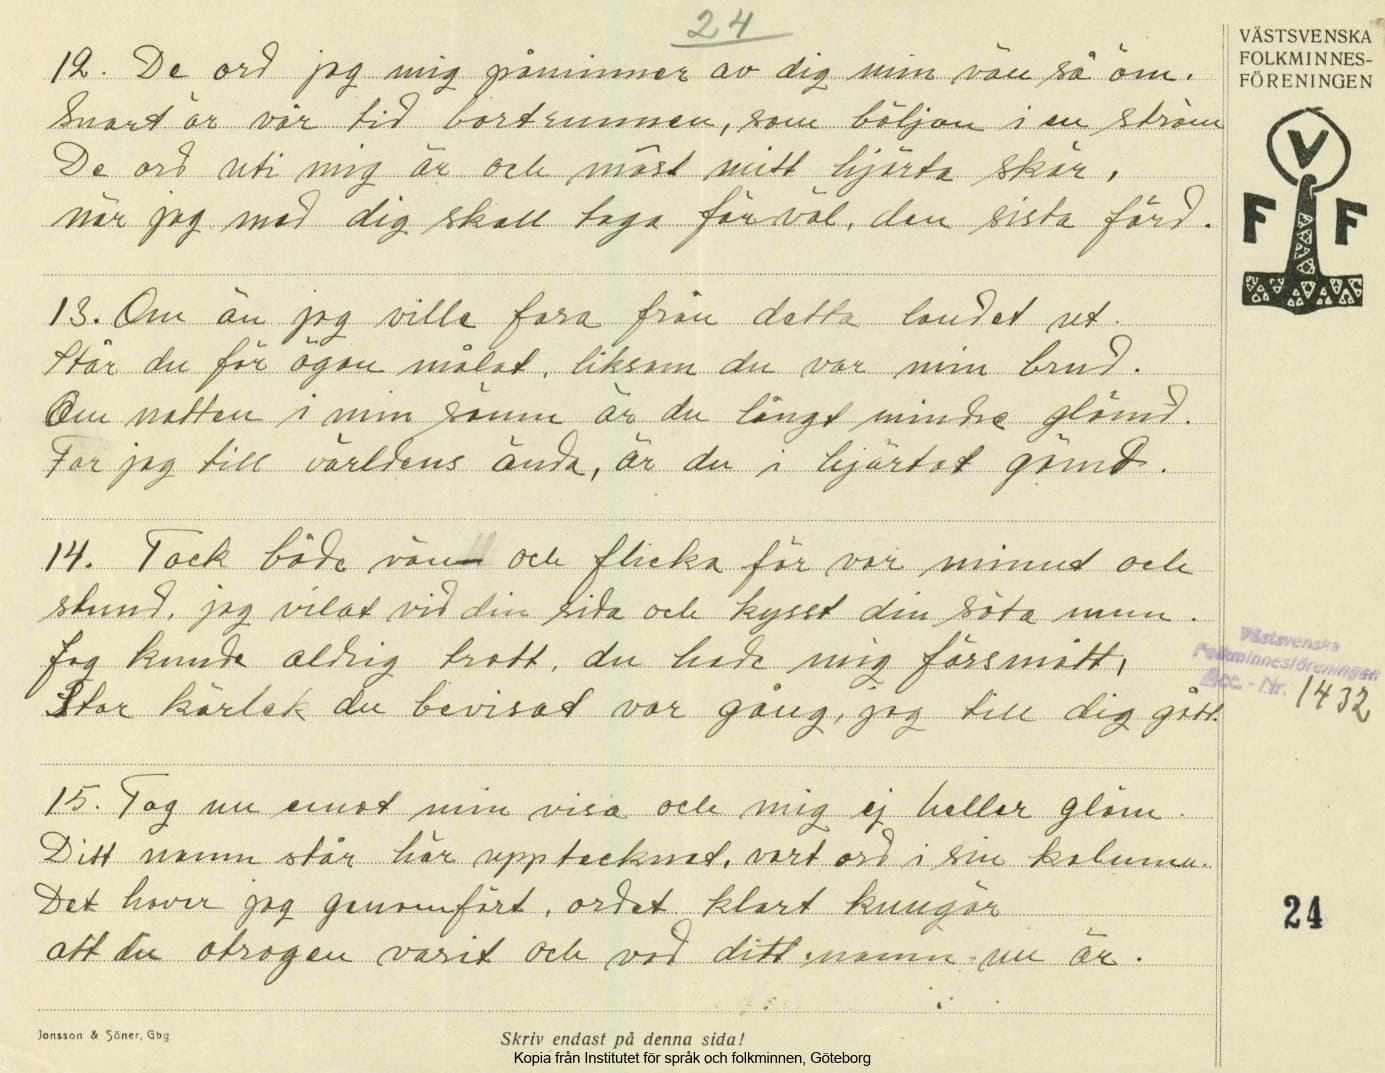 24
VÄSTSVENSKA
FOLKMINNES-
FÖRENINGEN
12. De ord jag mig påminner av dig min vän så öm.
Snart är vår tid bortrunnen, som böljan i en ström
De ord uti mig är och mäst mitt hjärta skär,
när jag med dig skall taga får väl, den sista färd.
V
F F
13. Om än jag ville fara från detta landet ut.
Står du för ögon målat, liksom du var min brud.
Om natten i min sömn är du långt mindre glömd.
Far jag till världens ända, är du i hjärtat gömd.
14. Tack både vän och flicka för var minut och
stund, jag vilat vid din sida och kysst din söta mun.
Jag kunde aldrig trott, du hade mig försmått,
Stor kärlek du bevisat var gång, jag till dig gått.
Västsvenska
Folkminnesföreningen
Acc. - Nr. 1432
15. Tag nu emot min visa och mig ej heller glöm.
Ditt namn står här upptecknat, vart ord i sin kolumn.
Det haver jag genomfört, ordet klart kungör
att du otrogen varit och vad ditt namn nu är.
24
Jonsson & Söner, Gbg
Skriv endast på denna sida!
Kopia från Institutet för språk och folkminnen, Göteborg